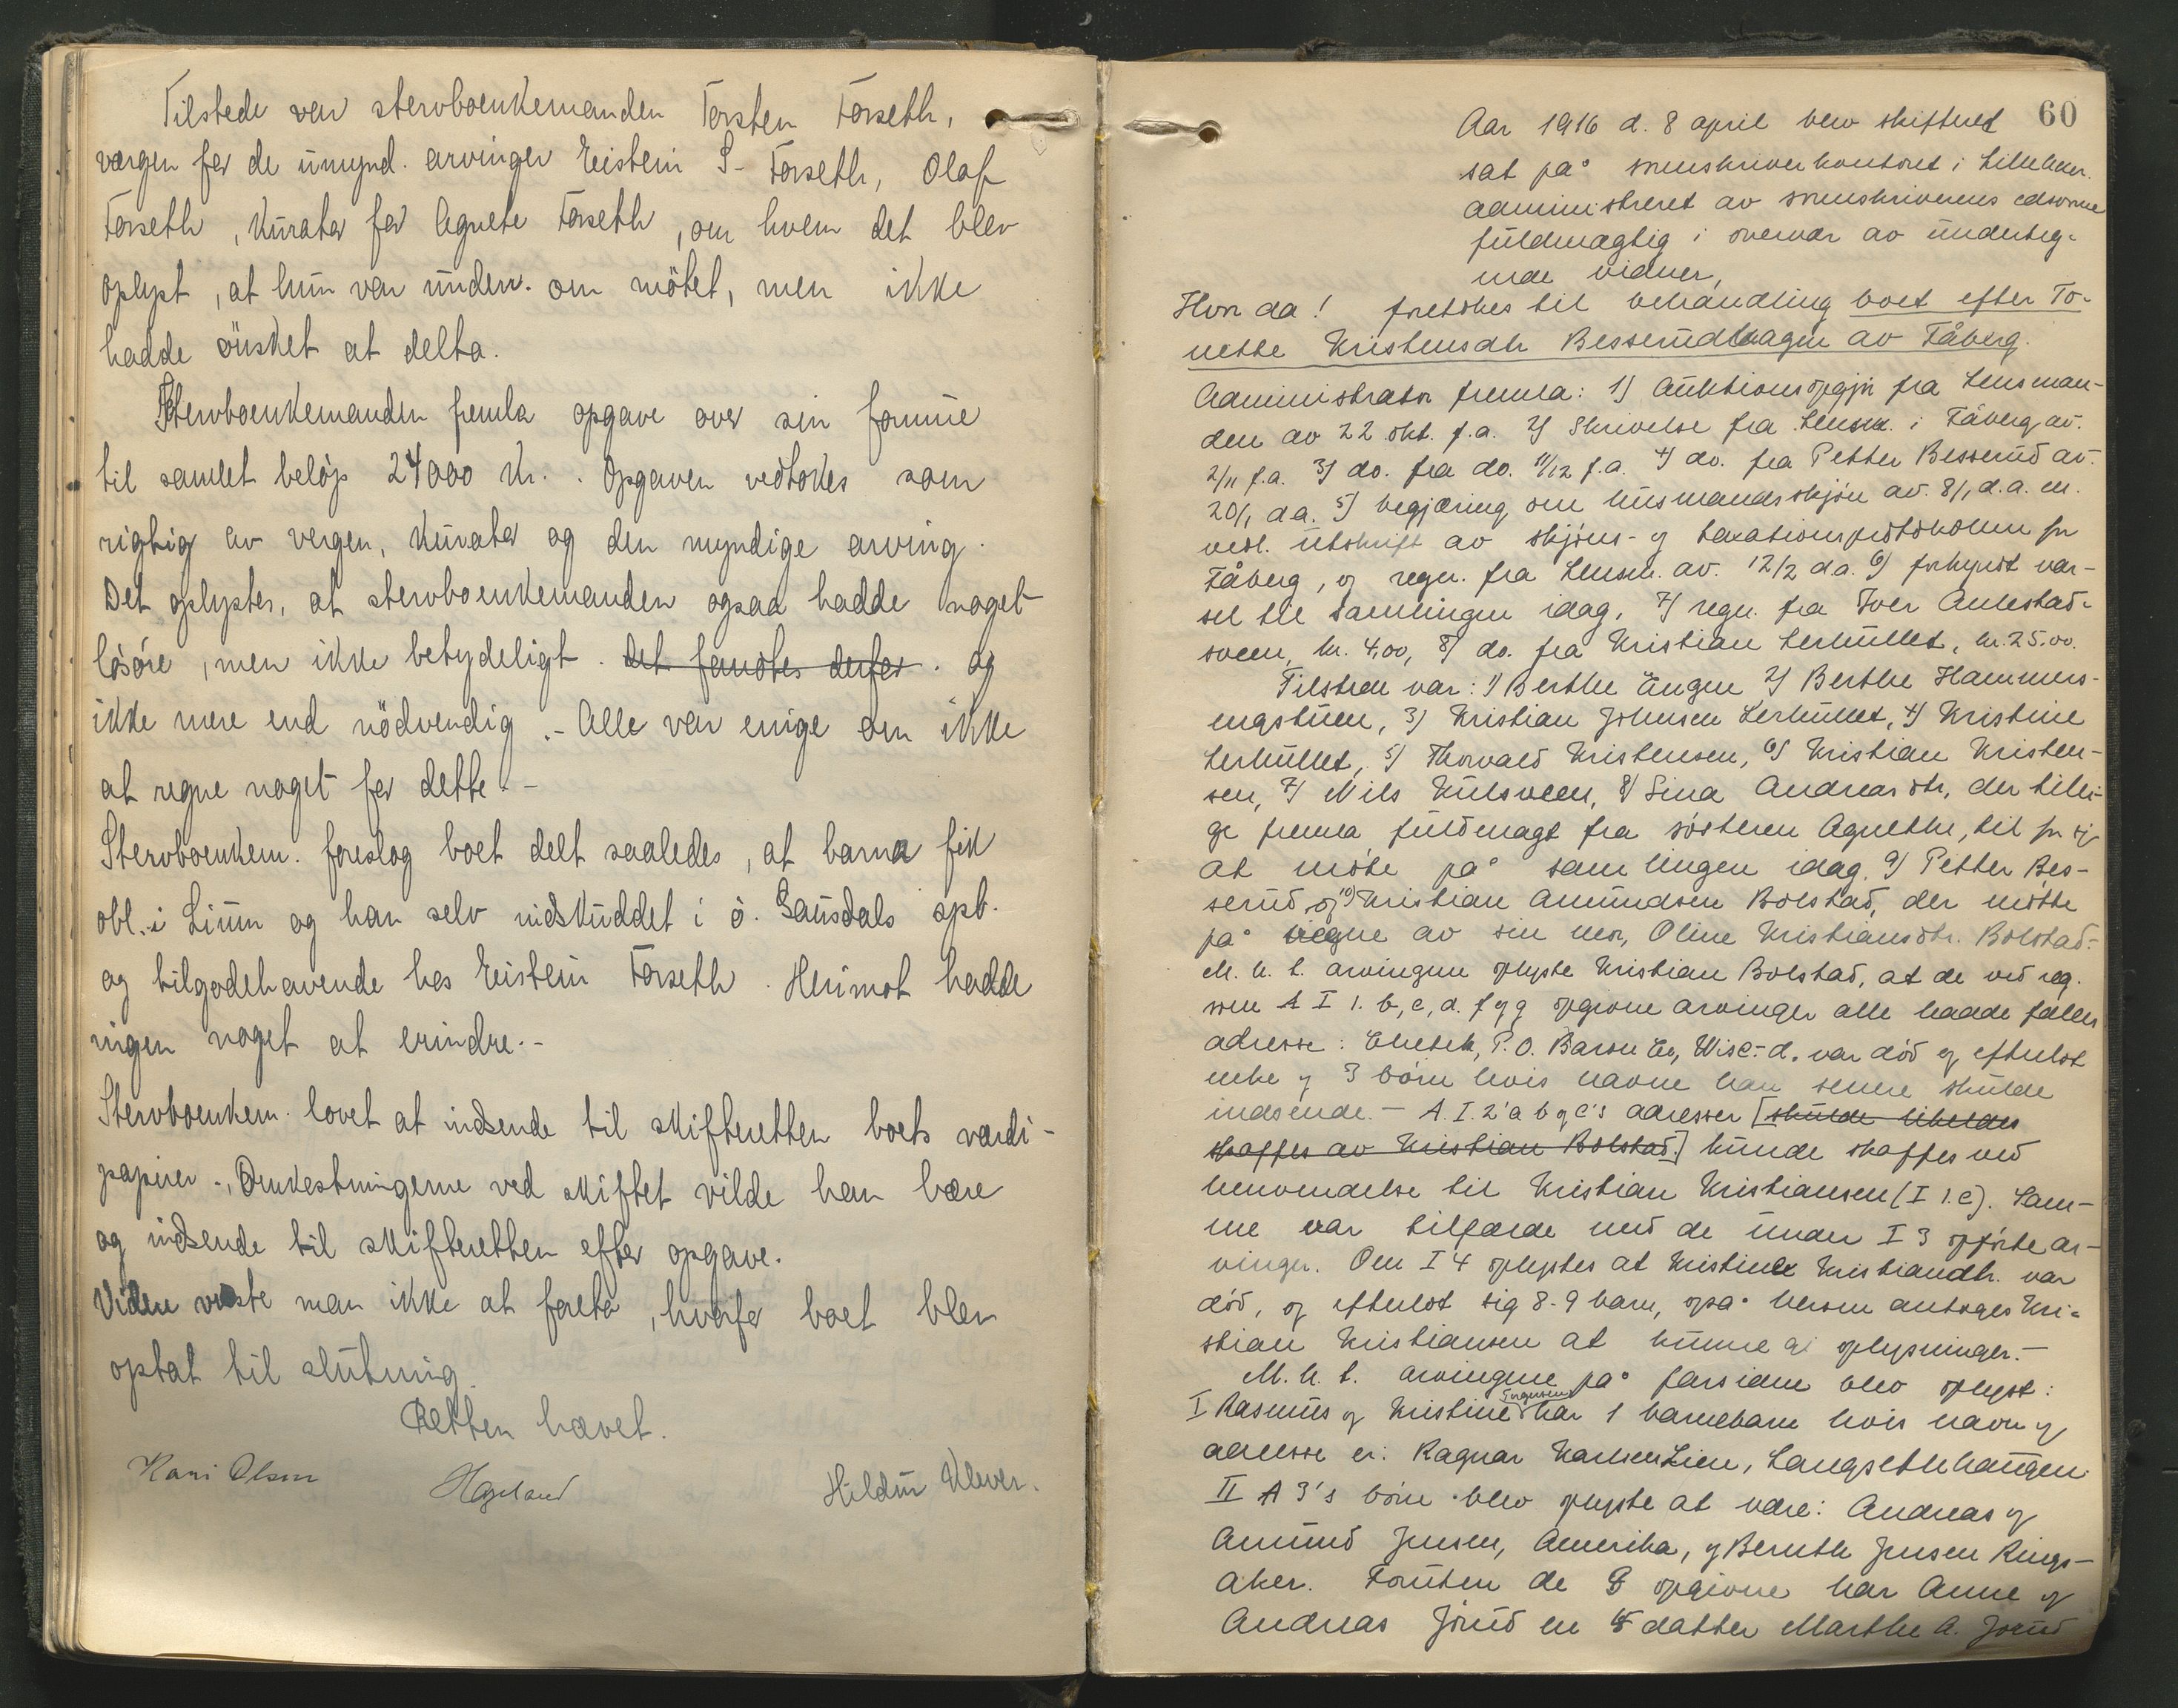 Tilstede var stervboenkemanden Torsten Forseth,
vergen for de umynd. arvinger Eistein S. Forseth, Olaf
Forseth, kurator for Agnete Forseth, om hvem det blev
oplyst, at hun var underr. om mötet, men ikke
hadde önsket at delta.
Stervboenkemanden fremla opgave over sin formue
til samlet belöp 24000 kr. . Opgaven vedtokes som
rigtig av vergen, kurator og den myndige arving.
Det oplystes, at stervboenkemanden ogsaa hadde noget
lösöre, men ikke betydeligt. det fandtes derfor. og
ikke mere end nödvendig. - Alle var enige om ikke
at regne noget for dette. -
Stervboenkem. foreslog boet delt saaledes, at barna fik
obl. i Lium og han selv indskuddet i ö. Gausdals spb.
og tilgodehavende hos Eistein Forseth. Herimot hadde
ingen noget at erindre. -
Stervboenkem. lovet at indsende til skifteretten boets værdi-
papirer. - Omkostningerne ved skiftet vilde han bære
og indsende til skifteretten efter opgave.
Videre visste man ikke at foreta, hvorfor boet blev
optat til slutning.
Retten hævet.
Kari Olsen Hageland Hildur Klever.
60
Aar 1916 d. 8 april blev skifteret
sat på sorenskriverkontoret i Lillehmr.
administreret av sorenskriverens edsvorne
fuldmægtig i overvær av underteg-
nede vidner,
Hvor da! foretokes til behandling boet efter To-
nette Kristensdtr Besserudhagen av Fåberg.
Administrator fremla: 1) Auktionsopgjør fra Lensman-
den av 22 okt. f.a. 2) Skrivelse fra Lensm. i Fåberg av.
2/11 f.a. 3) do. fra do. 11/12 f.a. 4) do. fra Petter Besserud av.
20/1 d.a. 5) begjæring om husmandsskjön av. 8/1 d.a. m.
vedl. utskrift av skjöns- og taxationsprotokollen for
Fåberg, og regn. fra Lensm. av. 12/2 d.a. 6) forkyndt var-
sel til samlingen idag, 7) regn. fra Iver Aulestad-
sveen, kr. 4,00, 8) do. fra Kristian Lerhullet, kr. 25.00.
Tilstede var: 1) Berthe Engen 2) Berthe Hammers-
engstuen, 3) Kristian Johnsen Lerhullet, 4) Kristine
Lerhullet, 5) Thorvald Kristensen, 6) Kristian Kristen-
sen, 7) Nils Kulsveen, 8) Sina Andreasdtr, der tilli-
ge fremla fuldmagt fra sösteren Agnethe, til for sig
at möte på samlingen idag. 9) Petter Bes-
serud, og 10) Kristian Amundsen Bolstad, der mötte
på vegne av sin mor, Oline Kristiansdtr. Bolstad. -
M. h. t. arvingene oplyste Kristian Bolstad, at de ved reg.
som A I 1. b, c, d. f og g opgivne arvinger alle hadde fælles
adresse: P.O. Wisc. - d. var död og efterlot
enke og 3 börn hvis navne han senere skulde
indsende. - A. I. 2' a b og c's adresser [skulde likeledes
skaffes av Kristian Bolstad.] kunde skaffes ved
henvendelse til Kristian Kristiansen (I 1. c). Sam-
me var tilfælde med de under I 3 opförte ar-
vinger. Om I 4 oplystes at Kristine Kristiandtr. var
död, og efterlot sig 8-9 barn, også herom antoges Kri-
stian Kristiansen at kunne gi oplysninger. -
M. h. t. arvingene på farsiden blev oplyst:
I Rasmus og Kristine Torgersen har 1 barnebarn hvis navn og
adresse er: Ragnar Karlsen Lien, Langsethhaugen.
II A 3's börn blev oplyste at være: Andreas og
Amund Jensen, Amerika, og Bernth Jensen Rings-
aker. Foruten de opgivne har Anne og
Andreas Jörud en datter Marthe A. Jorud